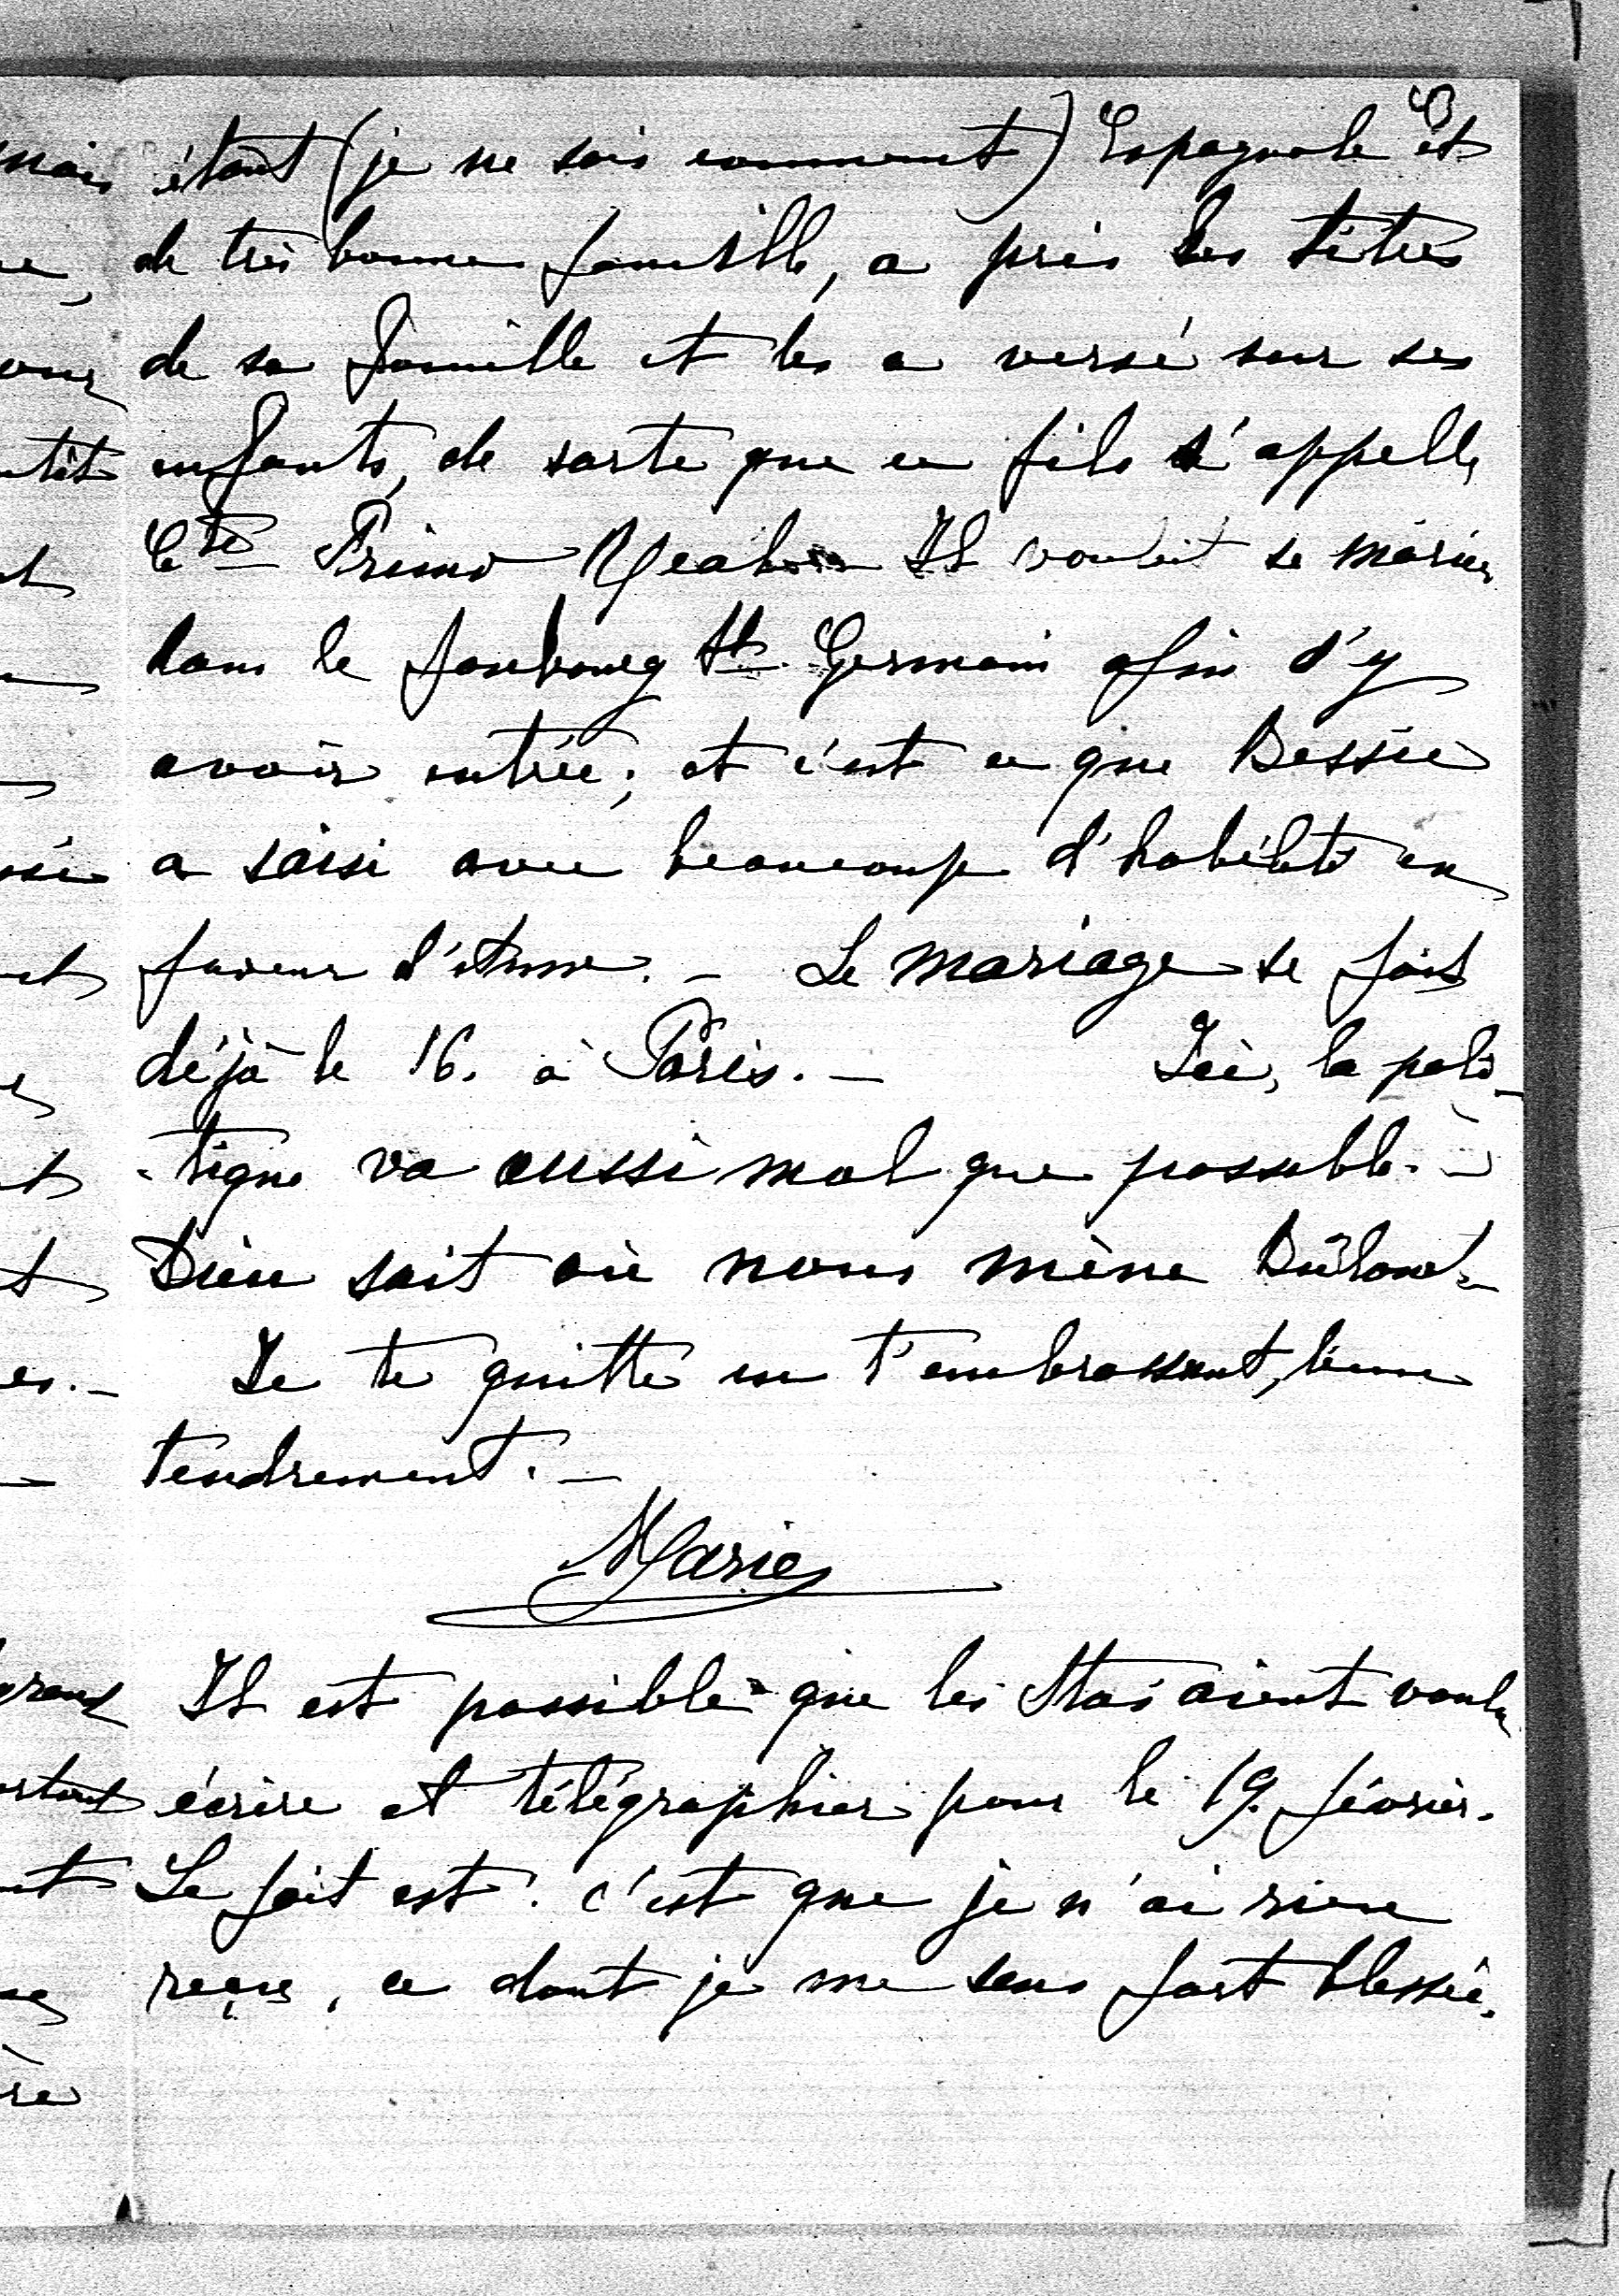 étant (je ne sais comment) Espagnole et
de très bonne famille, a pris les titres
de sa famille et les a versé sur ses
enfants, de sorte que ce fils s'appelle
Cte Primo Il voulait se marier
dans le faubourg St Germain afin d'y
avoir entrée; et c'est ce que Bessie
a saisi avec beaucoup d'habileté en
faveur d'Anna. - Le mariage se fait
déjà le 16. à Paris. - Ici, la poli-
-tique va aussi mal que possible. -
Dieu sait où nous mène Bülow! -
Je te quitte en t'embrassant,
tendrement. -
Marie
Il est possible que les aient voulu
écrire et télégraphier pour le 19. février.
Le fait est. c'est que je n'ai rien
reçu, ce dont je me sens fort blessée.